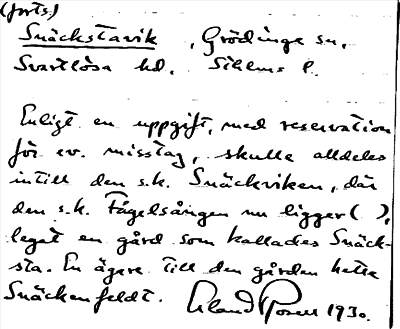 (forts.)
Snäckstavik, Grödinge sn,
Svartlösa hd. Sthlms l.
Enligt en uppgift, med reservation
för ev. misstag, skulle alldeles
intill den s.k. Snäckviken, där
den s.k. Fågelsången nu ligger ( ),
legat en gård som kallades Snäck-
sta. En ägare till den gården hette
Snäckenfeldt. Erland Rosell 1930.